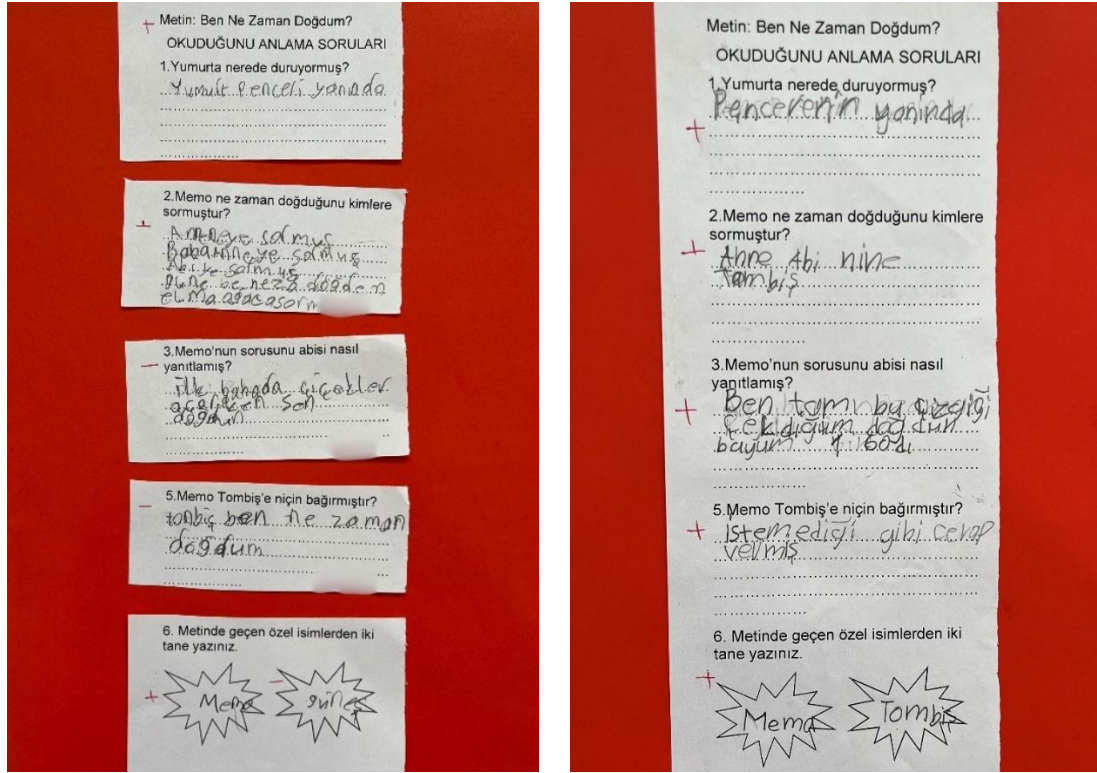 Metin: Ben Ne Zaman Doğdum?
OKUDUĞUNU ANLAMA SORULARI
1.Yumurta nerede duruyormuş?
Yumult Penceli yanında
2.Memo ne zaman doğduğunu kimlere
sormuştur?
Anneye sormuş
Babanneye sormuş
Abiye sormuş
elma
3.Memo'nun sorusunu abisi nasıl
yanıtlamış?
ilk bahada çiçekler
açarken sen
doğdun
5.Memo Tombiş'e niçin bağırmıştır?
tonbiş ben ne zaman
doğdum
6. Metinde geçen özel isimlerden iki
tane yazınız.
Memo
güneş
Metin: Ben Ne Zaman Doğdum?
OKUDUĞUNU ANLAMA SORULARI
1.Yumurta nerede duruyormuş?
Pencerenin yanında
2.Memo ne zaman doğduğunu kimlere
sormuştur?
Anne Abi nine
tombiş
3.Memo'nun sorusunu abisi nasıl
yanıtlamış?
Ben tam bu çizgiği
doğdun
5.Memo Tombiş'e niçin bağırmıştır?
istemediği gibi cevap
velmiş
6. Metinde geçen özel isimlerden iki
tane yazınız.
Memo
Tombiş